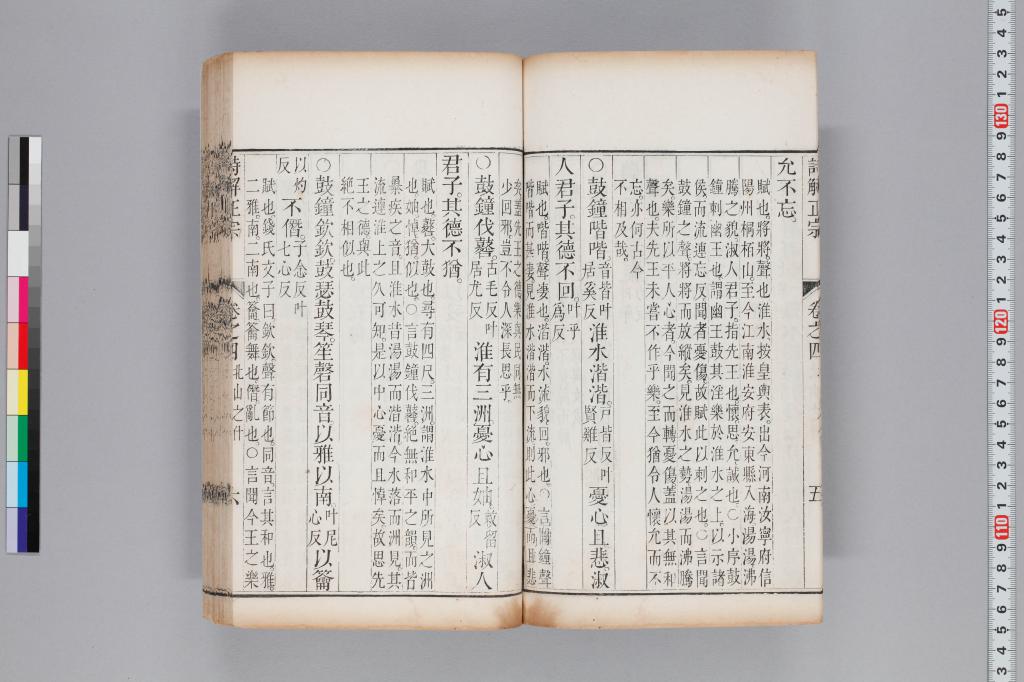 詩解正宗
卷之四
五
允不忘。
賦也。將將。聲也。淮水。按皇輿表。出今河南汝寧府信
陽州桐栢山。至今江南淮安府安東縣入海。湯湯。沸
騰之貌。淑人君子。指先王也。懷思。允誠也。○小序。鼓
鐘。刺幽王也。謂幽王鼓其淫樂於淮水之上。以示諸
侯。而流連忘反。聞者憂傷。故賦此以刺之也。○言聞
鼓鐘之聲。將將而放縱矣。見淮水之勢。湯湯而沸騰
矣。樂所以平人心者。今聞之而轉憂傷。蓋以其無和
聲也。夫先王未嘗不作乎樂。至今猶令人懷允而不
忘。亦何古今
不相及哉。
○鼓鐘喈喈。音皆叶居奚反淮水湝湝。戸皆反叶賢雞反憂心且悲。淑
人君子。其德不回。叶乎爲反
賦也。喈喈。聲凄也。湝湝。水流貌。回。邪也。○言聞鐘聲
喈喈而甚凄。見淮水湝湝而下流。則此心憂而且悲
矣。蓋先王之德樂與民同。無
少回邪。豈不令人深長思乎。
○鼓鐘伐鼛。古毛反叶居尤反淮有三洲。憂心且妯。敕留反淑人
君子。其德不猶。
賦也。鼛。大鼓也。尋有四尺。三洲。謂淮水中所見之洲
也。妯。悼。猶。似也。○言鼓鐘伐鼛。絕無和平之韻。而皆
暴疾之音。且淮水昔湯湯而湝湝。今水落而洲見。其
流連淮上之久可知。是以中心憂而且悼矣。故思先
王之德。與此
絶不相似也。
○鼓鐘欽欽。鼓瑟鼓琴。笙磬同音。以雅以南。叶尼心反以籥
以灼反不僭。子念反叶七心反
賦也。錢氏文子曰。欽欽。聲有節也。同音。言其和也。雅。
二雅。南。二南也。籥。籥舞也。僭。亂也。○言聞今王之樂
詩解正宗
卷之四
北山之什
六
130
120
110